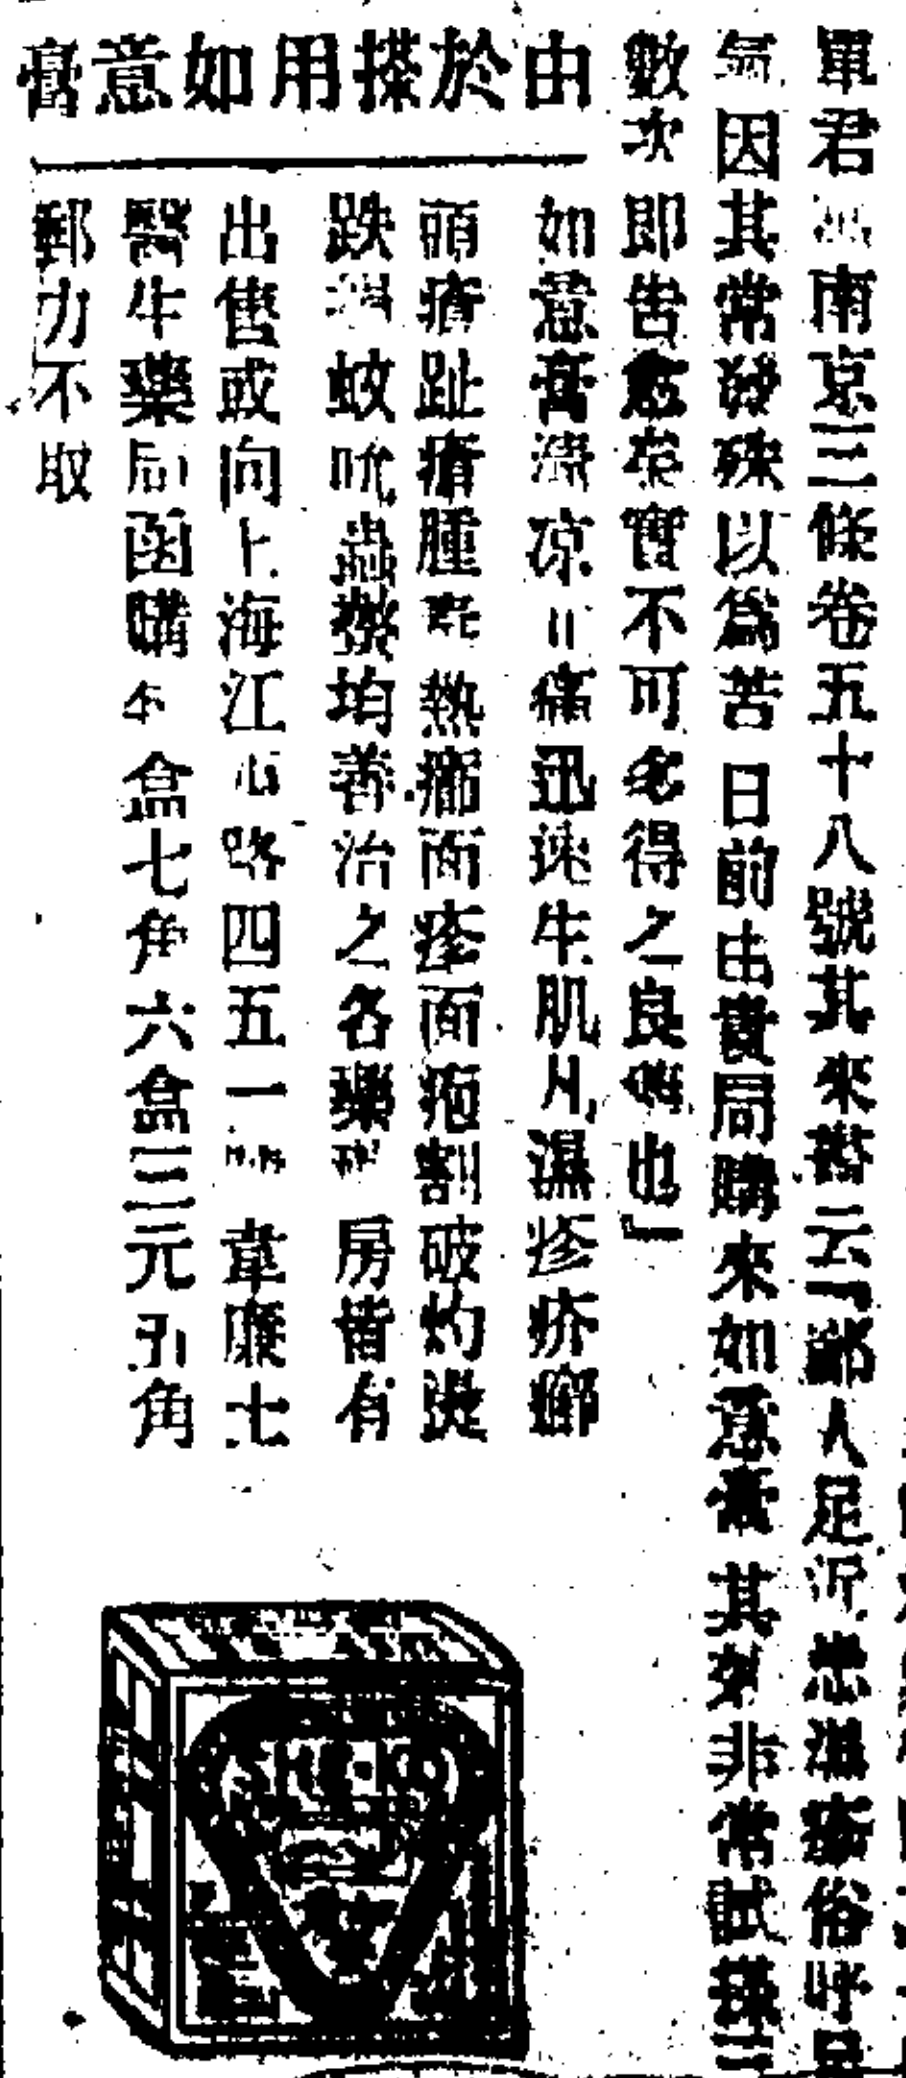 單君 南京三條巷五十八號其來書云「鄙人足沂患濕瘡俗呼
氣因其常發殊以爲苦日前由貴局購來如意膏其効非常試搽三
數次即告愈 實不可多得之良 也」
由於搽用如意膏
如意膏清凉止痛迅速生肌 濕疹疥癬
頭瘡趾瘡腫 熱癤面疹面疱割破灼燙
跌 蚊吮蟲螫均善治之各藥 房皆有
出售或向上海江 路四五一 韋廉士
醫生藥局函購 盒七角六盒三元 角
郵力不取